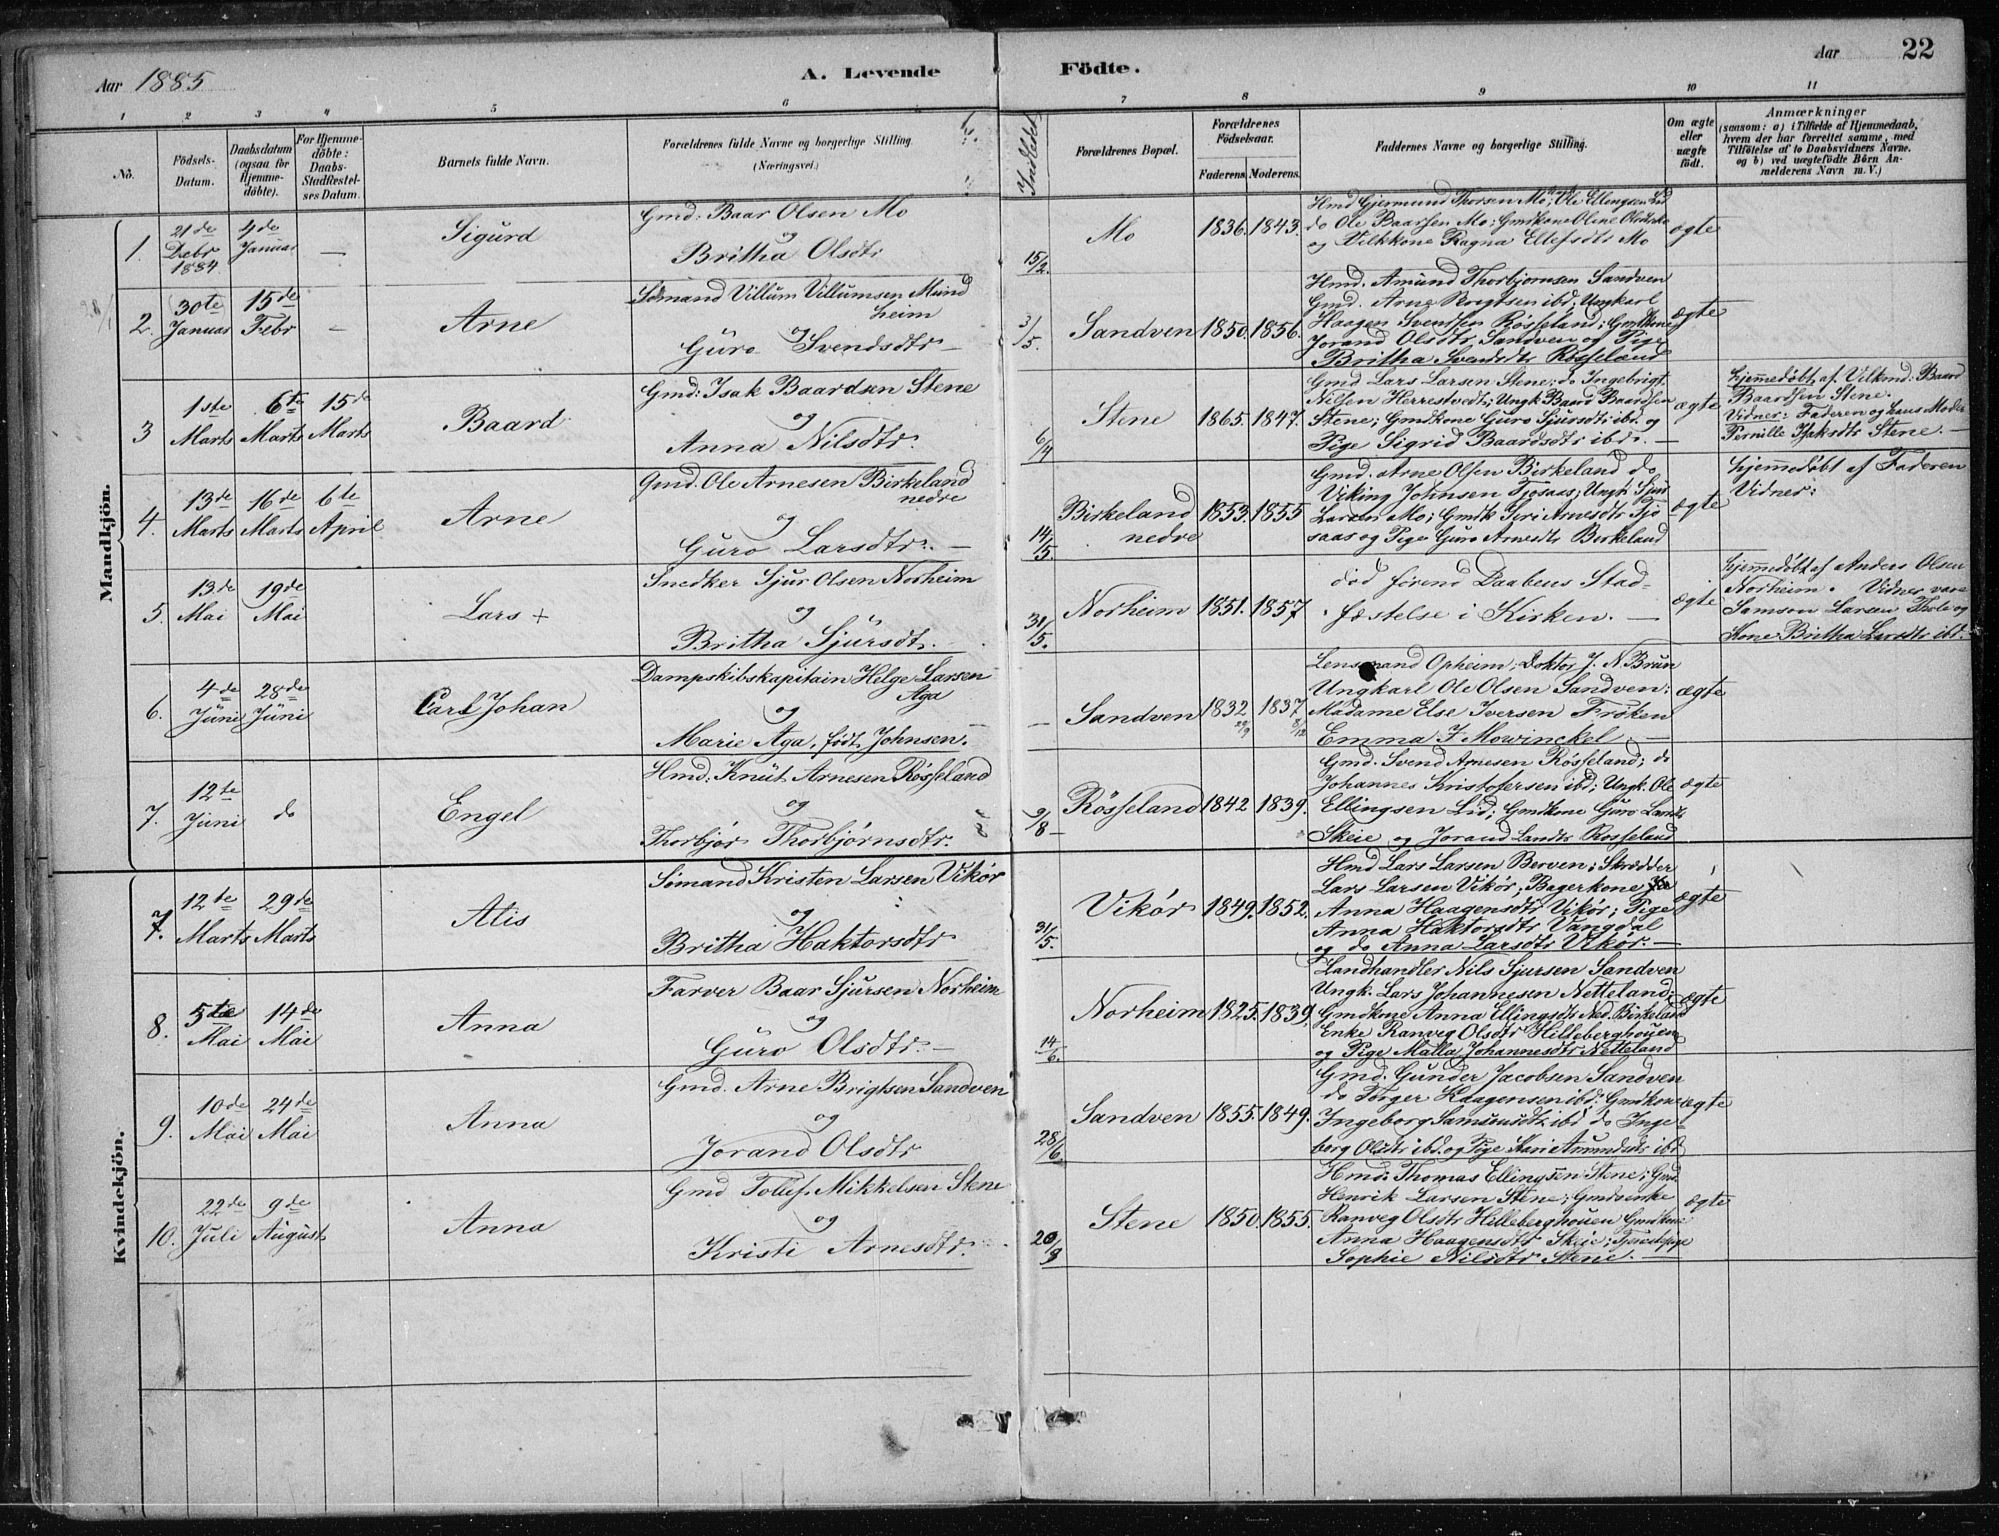 Aar 1885
A. Levende
Födte.
Aar
22
1
2
3
4
5
6
7
8
9
10
11
No.
Födsels-
Datum.
Daabsdatum
(ogsaa for
Hjemme-
döbte).
For Hjemme-
döbte:
Daabs-
Stadfæstel-
ses Datum.
Barnets fulde Navn.
Forældrenes fulde Navne og borgerlige Stilling.
(Næringsvei.)
Indledet
Forældrenes Bopæl.
Forældrenes
Födselsaar.
Faderens.
Moderens.
Faddernes Navne og borgerlige Stilling.
Om ægte
eller
uægte
födt.
Anmærkninger
(saasom: a) i Tilfælde af Hjemmedaab,
hvem der har forrettet samme, med
Tilföielse af to Daabsvidners Navne.
og b) ved uægtefödte Börn An-
melderens Navn m. V.)
Mandkjön.
1.
21de
Debr
1884
4de
Januar
—
Sigurd
Gmd: Baar Olsen Mo
og
Britha Olsdtr
15/2.
Mo
1836.
1843.
Hmd Gjermund Thorsen Mo; Ole Ellingsen Lid
do Ole Baarsen Mo; Gmdkone Oline Olsdtr
og Vilkkone Ragna Ellefsdtr Mo
ægte
2.
30te
Januar
15de
Febr
—
Arne
Sømand Villum Villumsen Mund
heim
og
Guro Svendsdtr —
3/5.
Sandven
1850.
1856.
Hmd. Amund Thorbjørnsen Sandven
Gmd. Arne Brigtsen ibd; Ungkarl
Haagen Svendsen Røsseland; Gmdkone
Jorand Olsdtr Sandven og Pige
Britha Svendsdtr Røsseland
ægte
3
1ste
Marts
6te
Marts
15de
Marts
Baard
Gmd: Isak Baardsen Stene
og
Anna Nilsdtr.
6/4
Stene
1865.
1847.
Gmd Lars Larsen Stene; do Ingebrigt
Nilsen Herrestvedt; Ungk Baard Baardsen
Stene; Gmdkone Guro Sjursdtr ibd. og
Pige Sigrid Baardsdtr ibd. —
ægte
hjemmedøbt af Vilkmd: Baard
Baardsen Stene.
Vidner: Faderen og hans Moder
Pernille Isaksdtr Stene. —
4.
13de
Marts
16de
Marts
6te
April
Arne
Gmd. Ole Arnesen Birkeland
nedre
og
Guro Larsdtr. —
14/5
Birkeland
nedre
1853.
1855
Gmd. Arne Olsen Birkeland do
Viking Johnsen Tjosaas; Ungk Sjur
Larsen Mo; Gmdk Siri Arnesdtr Tjo
saas og Pige Guro Arnesdtr Birkeland
ægte
hjemmedøbt af Faderen
Vidner:
5.
13de
Mai
19de
Mai
Lars +
Snedker Sjur Olsen Norheim
og
Britha Sjursdtr.
31/5.
Norheim
1851.
1857
død førend Daabens Stad-
fæstelse i Kirken. —
ægte
hjemmedøbt af Anders Olsen
Norheim. Vidner vare
Samson Larsen Thole og
Kone Britha Larsdtr ibd. —
6.
4de
Juni
28de
Juni
Carl Johan
Dampskibskapitain Helge Larsen
Aga
og
Marie Aga, født Johnsen. —
—
Sandven
1832
29/9
1837
8/12
Lensmand Opheim; Doktor J. N Brun
Ungkarl Ole Olsen Sandven;
Madame Else Iversen Frøken
Emma J Mowinckel. —
ægte
7.
12te
Juni
do
Engel
Hmd. Knut Arnesen Røsseland
og
Thorbjør Thorbjørnsdtr.
9/8 —
Røsseland
1842
1839.
Gmd. Svend Arnesen Røsseland; do
Johannes Kristofersen ibd; Ungk. Ole
Ellingsen Lid; Gmdkone Guro Larsdtr
Skeie og Jorand Larsdtr Røsseland
ægte
Kvindekjön.
7.
12te
Marts
29de
Marts
Alis
Sømand Kristen Larsen Vikør
og
Britha Haktorsdtr
31/5.
Vikør
1849.
1852.
Hmd Lars Larsen Berven; Skrædder
Lars Larsen Vikør; Bagerkone
Anna Haagensdtr Vikør; Pige
Anna Haktorsdtr Vangdal
og do Anna Larsdtr Vikør. —
ægte
8.
5te
Mai
14de
Mai
Anna
Farver Baar Sjursen Norheim
og
Guro Olsdtr. —
14/6.
Norheim
1825.
1839.
Landhandler Nils Sjursen Sandven
Ungk. Lars Johannesen Netteland;
Gmdkone Anna Ellingsdtr Ned. Birkeland
Enke Ranveg Olsdtr Hilleberghouen
og Pige Malla Johannesdtr Netteland
ægte
9.
10de
Mai
24de
Mai
Anna
Gmd. Arne Brigtsen Sandven
og
Jorand Olsdtr
28/6.
Sandven
1855.
1849.
Gmd. Gunder Jacobsen Sandven
do Torger Haagensen ibd. Gmdkone
Ingeborg Samsonsdtr ibd do Inge-
borg Olsdtr ibd. og Pige Kari Amundsdtr ibd
ægte
10.
22de
Juli
9de
August
Anna
Gmd Tollef Mikkelsen Stene
og
Kristi Arnesdtr.
20/9
Stene
1850.
1855.
Hmd: Thomas Ellingsen Stene; Gmd.
Henrik Larsen Stene; Gmdenke
Ranveg Olsdtr Hilleberghouen Gmdkone
Anna Haagensdtr Skeie; Tjenestpige
Sophie Nilsdtr Stene. —
ægte